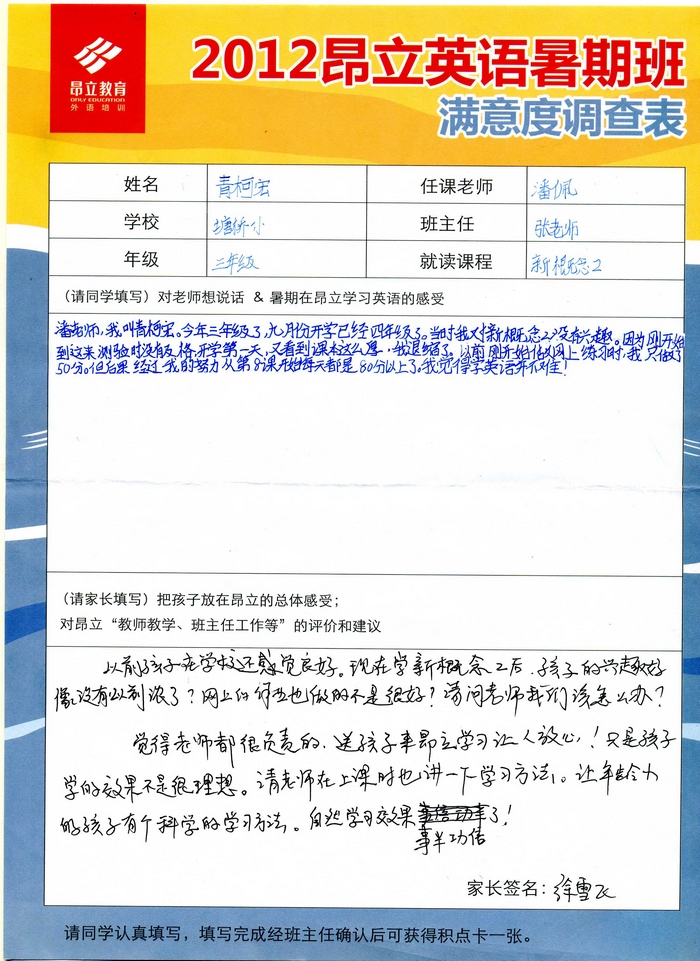 昂立教育
ONLY EDUCATION
外语培训
2012昂立英语暑期班
满意度调查表
姓名 青柯宏 任课老师 潘佩
学校 塘桥小 班主任 张老师
年级 三年级 就读课程 新概念2
(请同学填写)对老师想说话 & 暑期在昂立学习英语的感受
潘老师,我叫青柯宏。今年三年级了,九月份开学已经四年级了。当时我对新概念2没有兴趣。因为刚开始
到这来测验时没有及格,开学第一天,又看到课本这么厚,我退缩了。以前刚开始做网上练习时,我只做了
50分。但后果经过我的努力从第8课开始每天都是80分以上了。我觉得学英语并不难!
(请家长填写)把孩子放在昂立的总体感受;
对昂立“教师教学、班主任工作等”的评价和建议
以前孩子在学校还感觉良好。现在学新概念2后,孩子的兴趣好
像没有以前浓了?网上作业也做的不是很好?请问老师我们该怎么办?
觉得老师都很负责的,送孩子来昂立学习让人放心!只是孩子
学的效果不是很理想。请老师在上课时也讲一下学习方法。让年龄小
的孩子有个科学的学习方法。自然学习效果事半功倍了!
家长签名:徐雪飞
请同学认真填写,填写完成经班主任确认后可获得积点卡一张。